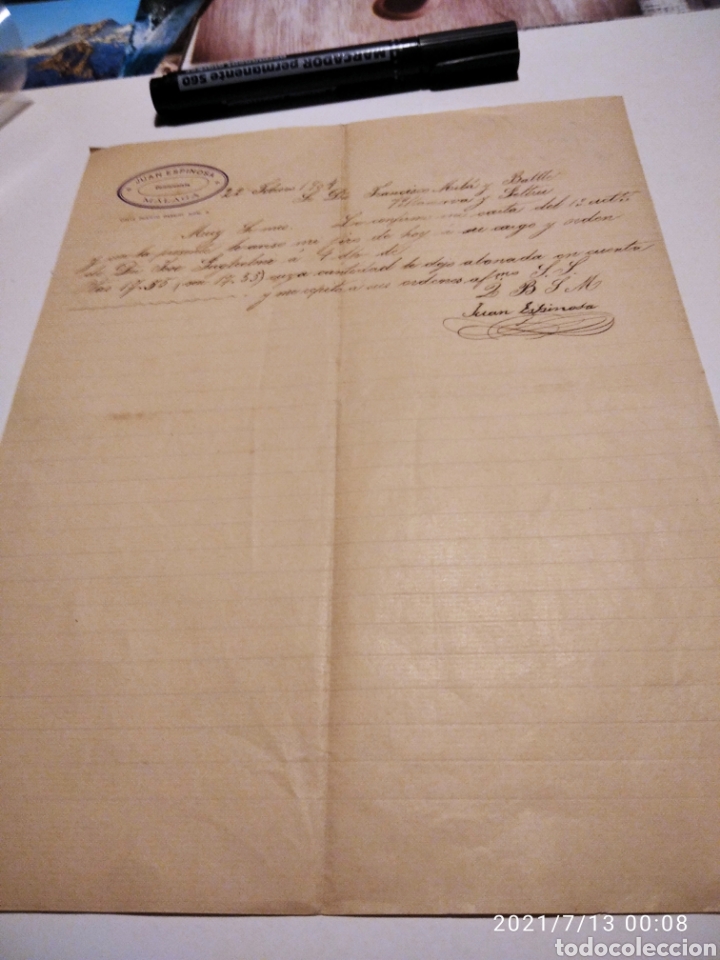 MARCADOR permanente 560
JUAN ESPINOSA
MÁLAGA
22
Sr Dn Francisco Milá y Batlle
Villanueva y Geltru
Muy Sr mio: Le confirmo mi carta del 12
y con la presente le aviso mi giro de hoy a su cargo y orden
de Dn á 9 d/v de
Ptas 17.55 (son 17.55) cuya cantidad le dejo abonada en cuenta
y me repito a sus ordenes afmo S. S.
Q B S M
Juan Espinosa
2021/7/13 00:08
todocoleccion